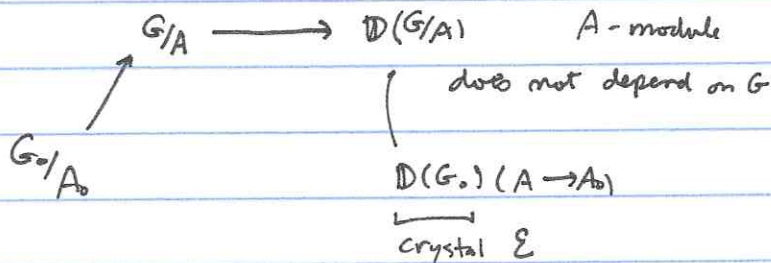 G/A ⟶ 𝔻(G/A) A-module
does not depend on G
G₀/A₀
𝔻(G₀)(A → A₀)
crystal ℰ